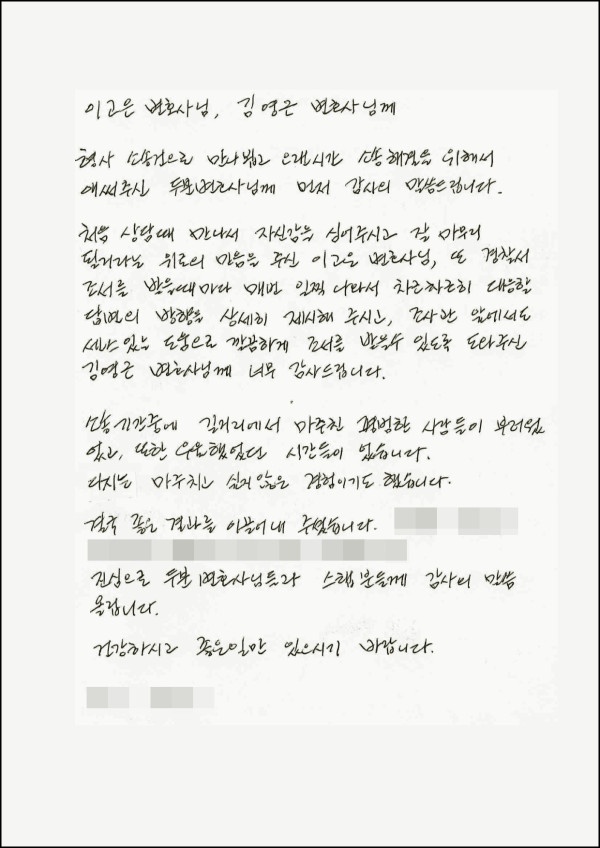 이고은 변호사님, 김영근 변호사님께
형사 소송건으로 만나뵙고 오랜시간 소송해결을 위해서
애써주신 두분변호사님께 먼저 감사의 말씀드립니다.
처음 상담때 만나서 자신감을 심어주시고 잘 마무리
될거라는 위로의 마음을 주신 이고은 변호사님, 또 경찰서
조서를 받을때마다 매번 일찍 나와서 차근차근히 대응할
답변의 방향을 상세히 제시해 주시고, 조사관 앞에서도
센스있는 도움으로 깔끔하게 조서를 받을수 있도록 도와주신
김영근 변호사님께 너무 감사드립니다.
소송기간중에 길거리에서 마주친 평범한 사람들이 부러웠
었고, 또한 우울했었던 시간들이 있습니다.
다시는 마주치고 싶지않은 경험이기도 했습니다.
결국 좋은 결과를 이끌어내 주셨습니다.
진심으로 두분 변호사님들과 스텝분들께 감사의 말씀
올립니다.
건강하시고 좋은일만 있으시기 바랍니다.